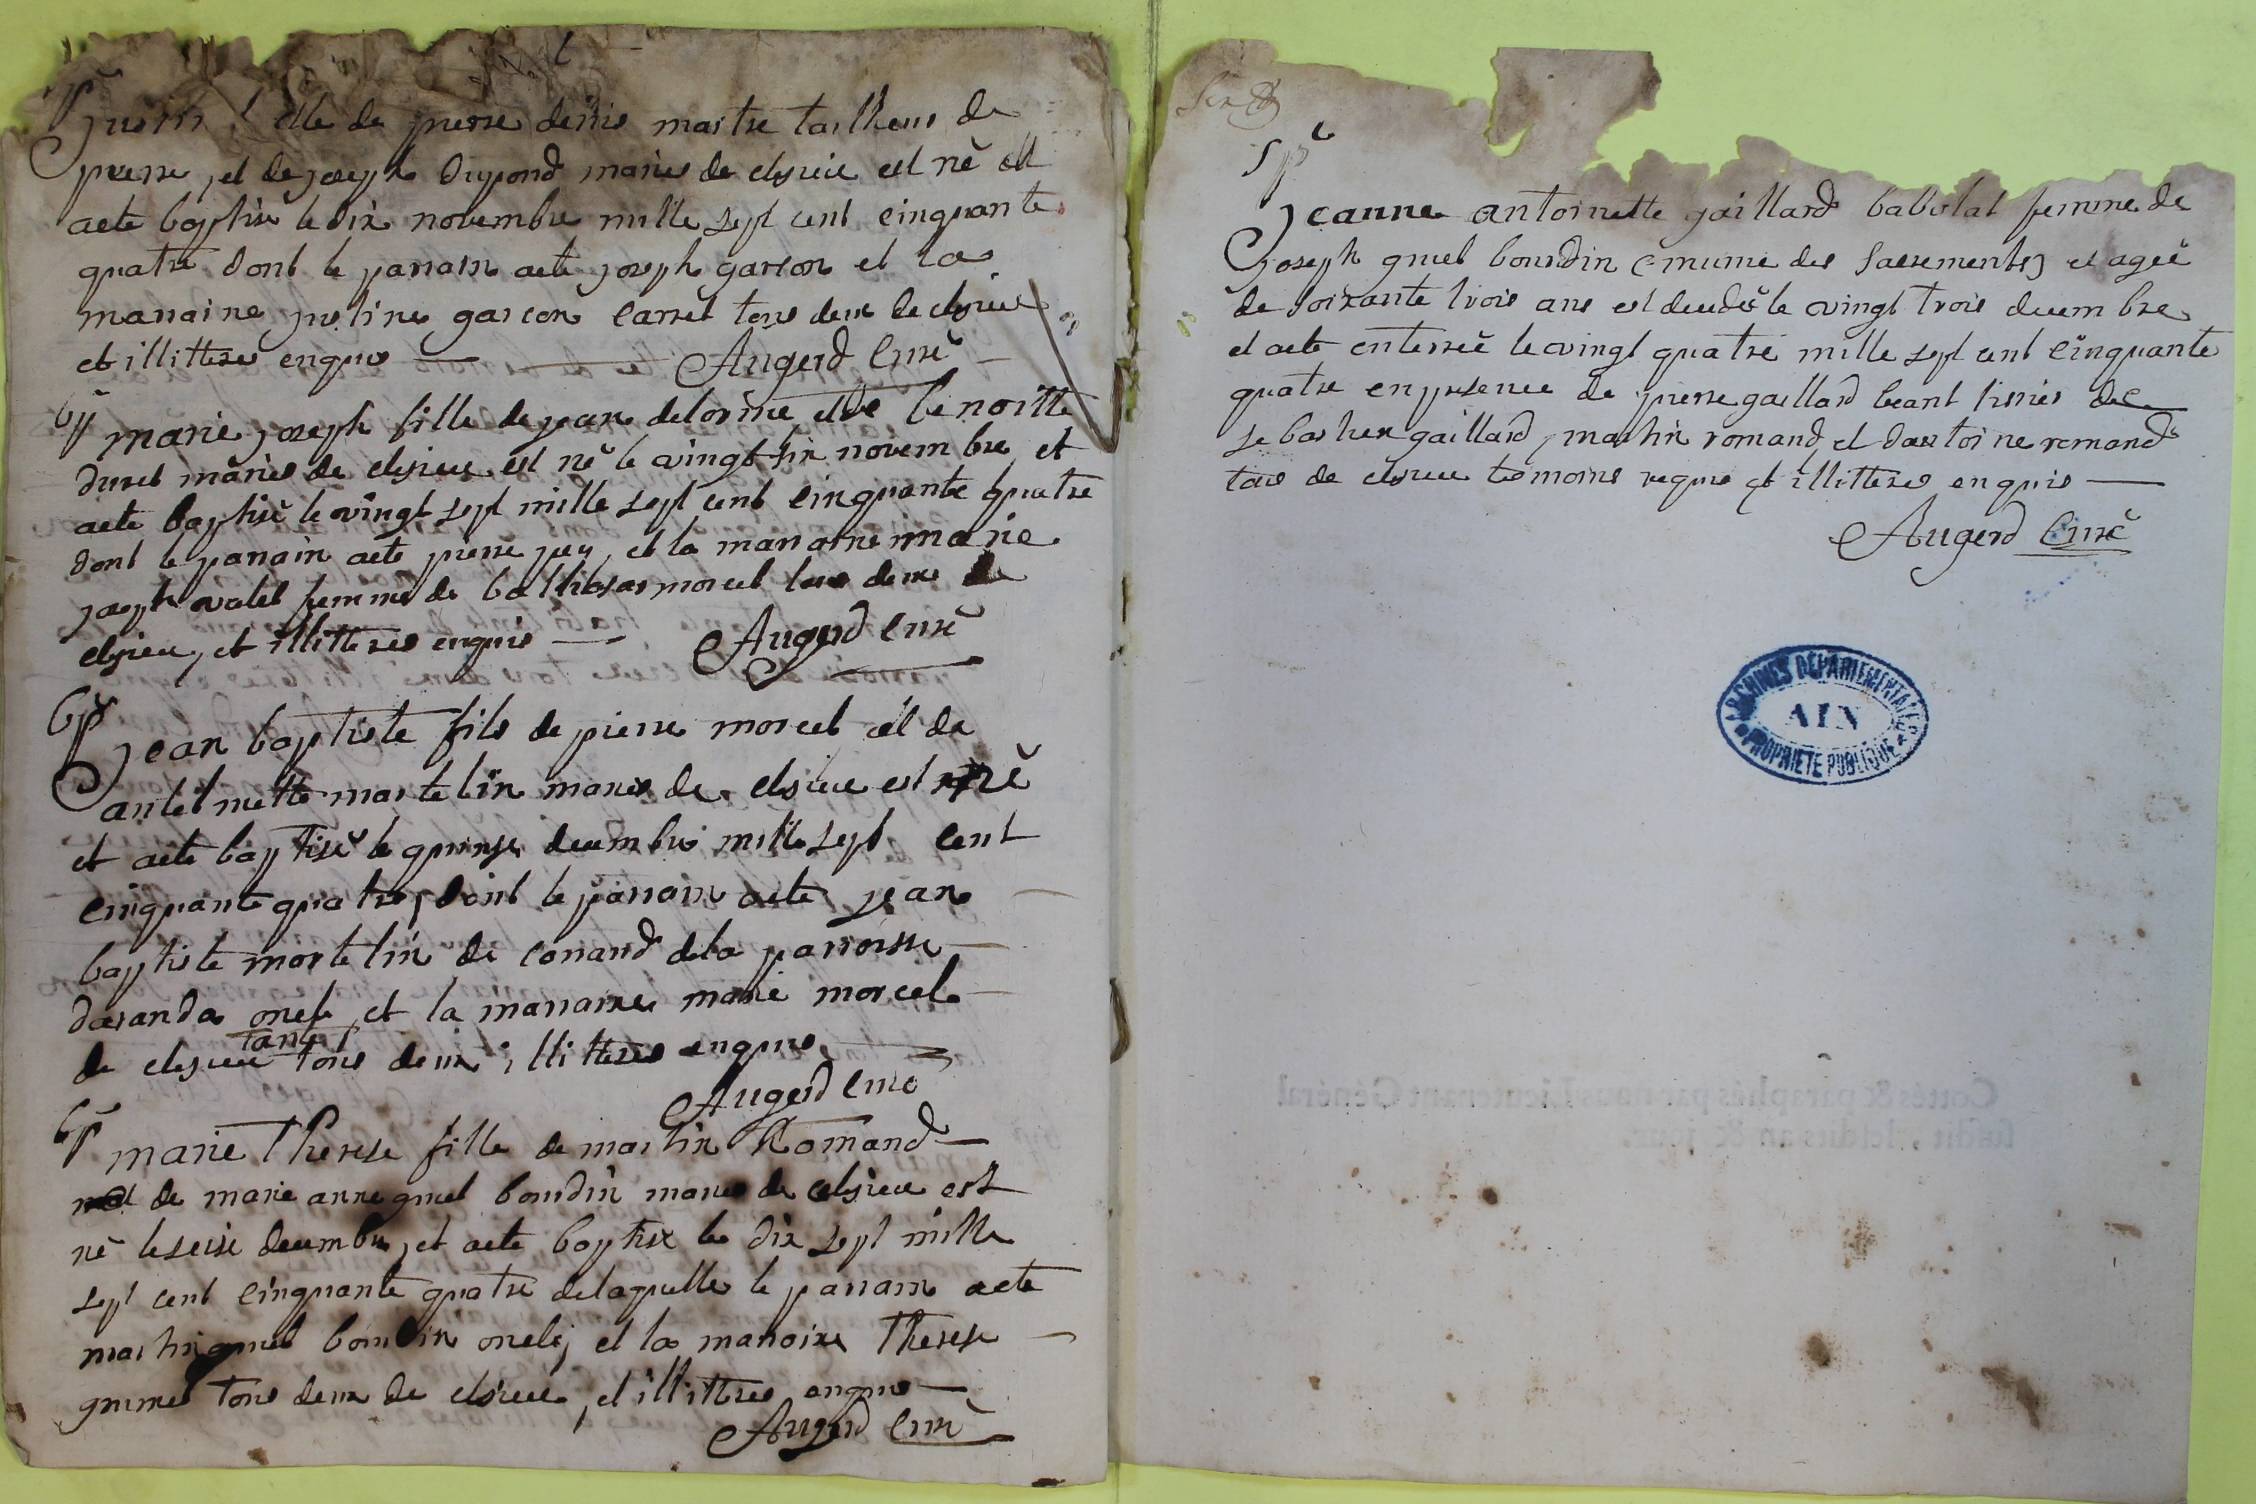 fille de pierre denis maitre tailheur de
pierre, et de joseph dupond mariés de cleysieu est né et
aeté baptisé le dix novembre mille sept cent cinquante
quatre dont le parrain aeté joseph garson et la
marraine justine garcon carrel tous deux de cleysieu
et illitteres enquis Augerd Curé
bp
marie joseph fille de jean delorme et de benoitte
duret mariés de cleysieu est né le vingt six novembre, et
aeté baptisé le vingt sept mille sept cent cinquante quatre
dont le parrain aeté pierre jey, et la marraine marie
joseph valet femme de balthasar morcel tous deux de
cleysieu, et illitteres enquis Augerd Curé
bp
jean baptiste fils de pierre morcel et de
antelmette martelin mariés de cleysieu est né
et aeté baptisé le quinse decembre mille sept cent
cinquante quatre, dont le parrain aeté jean
baptiste martelin de conand de la parroisse
daranda oncle, et la marraine marie morcel
tante
de cleysieu tous deux illitteres enquis
Augerd Curé
bp
marie Therese fille de martin Romand
et de marie anne guiel bourdin mariés de cleysieu est
né le seise decembre, et aeté baptisé le dix sept mille
sept cent cinquante quatre de laquelle le parrain aeté
martin guiel bourdin oncle, et la marraine Therese
tous deux de cleysieu, et illitteres enquis
Augerd Curé
sp
jeanne antoinette gaillard babolat femme de
joseph guiel bourdin emunie des sacrements et ageé
de soixante trois ans est decedeé le vingt trois decembre
et aeté enterreé le vingt quatre mille sept cent cinquante
quatre en presence de pierre gaillard tissier de
sebastien gaillard, martin romand, et dantoine romand
tous de cleysieu temoins requis et illitteres enquis
Augerd Curé
ARCHIVES DÉPARTEMENTALES
AIN
PROPRIÉTÉ PUBLIQUE
Cottés & paraphés par nous Lieutenant Général
susdit, lesdits an & jour.